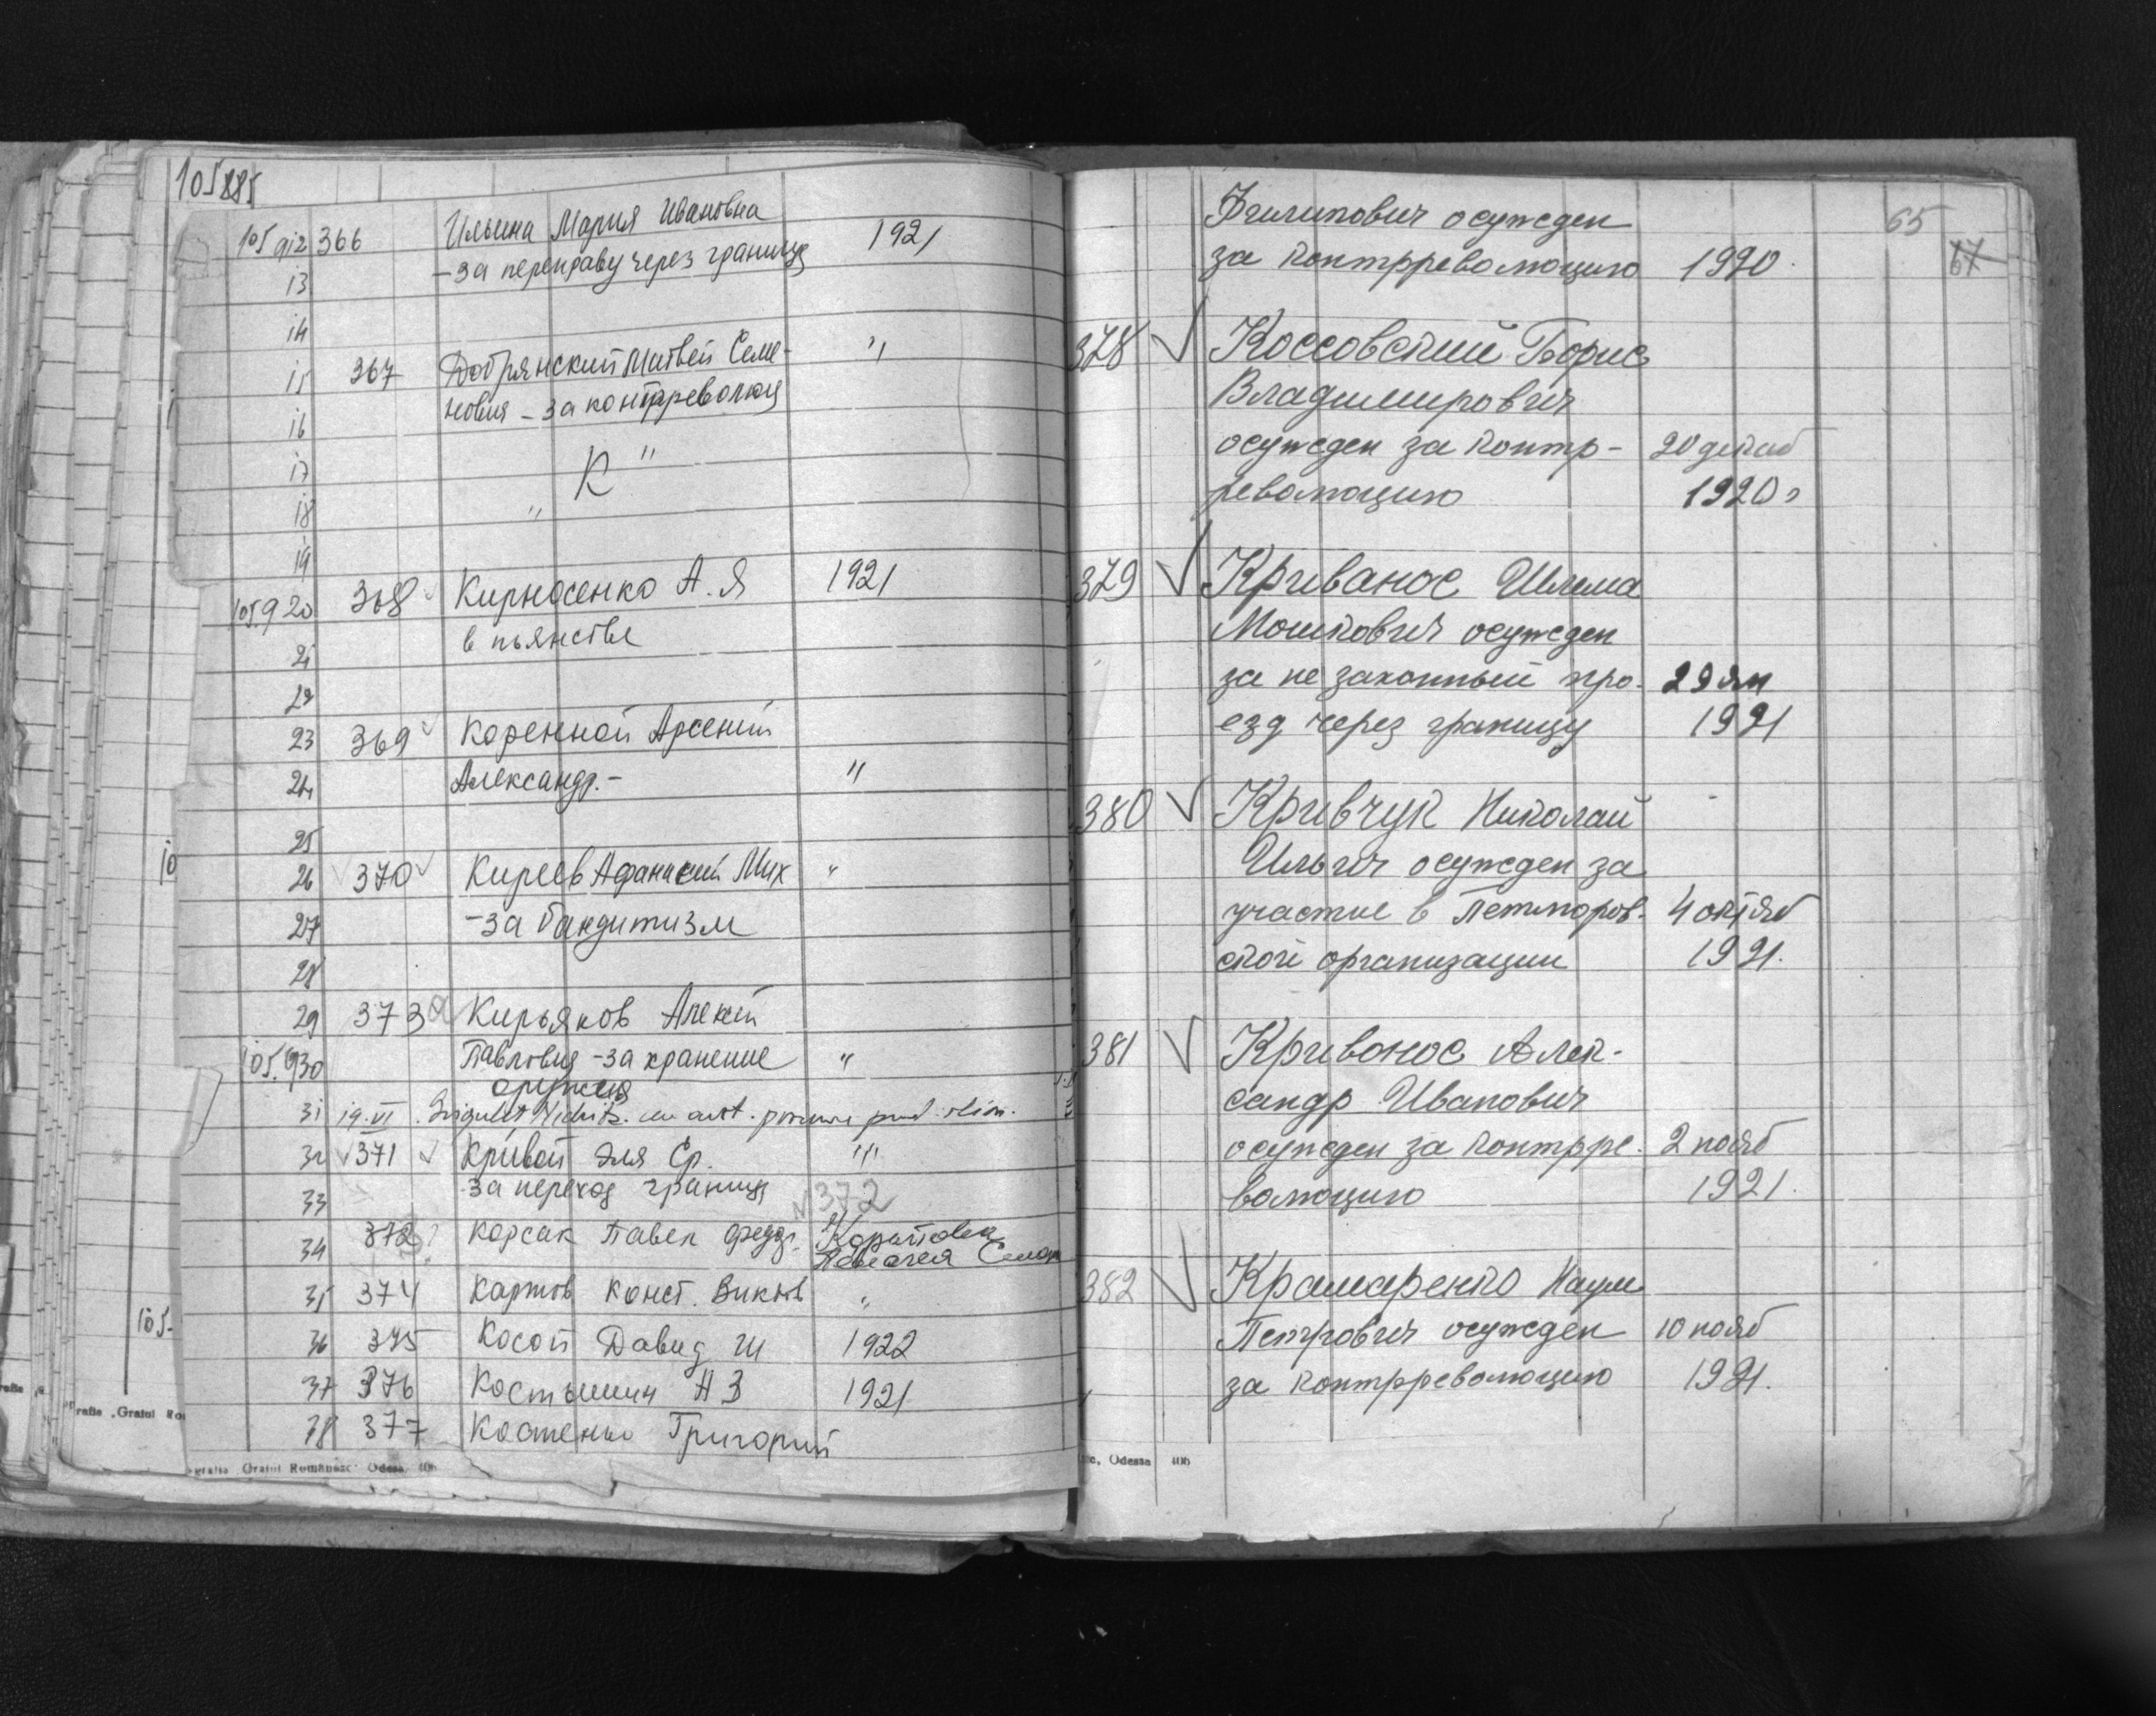 105885
105912 366 Ильина Мария Ивановна 1921
13 - за переправу через границу
14
15 367 Добрянский Матвей Семе- "
16 нович - за контрреволюц
17 " К "
18
19
105.920 368 Кирносенко А. Я 1921
21 в пьянстве
22
23 369 Коренной Арсений
24 Александр. - "
25
26 370 Киреев Афанасий Мих "
27 - за бандитизм
28
29 373а Кирьяков Алексей
105.930 Павлович - за хранение "
оружия
31 19.VI
32 371 Кривой Эля Ср. "
33 за переход границ 372
34 372 Корсак Павел Федор.
35 374 Карпов Конст. Виктов "
36 375 Косой Давид Ш 1922
37 376 Костышин А З 1921
38 377 Костенко Григорий
Gratul Românesc Odesa 406
65
67
Филипович осужден
за контрреволюцию 1920.
378 Коссовский Борис
Владимирович
осужден за контр- 20 декаб
революцию 1920 г
379 Криванос Шлема
Мошкович осужден
за не законный про- 29 ян
езд через границу 1921
380 Кривчук Николай
Ильич осужден за
участие в Петлюров- 4 октяб
ской организации 1921.
381 Кривонос Алек-
сандр Иванович
осужден за контрре- 2 нояб
волюцию 1921.
382 Крамаренко Наум
Петрович осужден 10 нояб
за контрреволюцию 1921.
Odessa 406